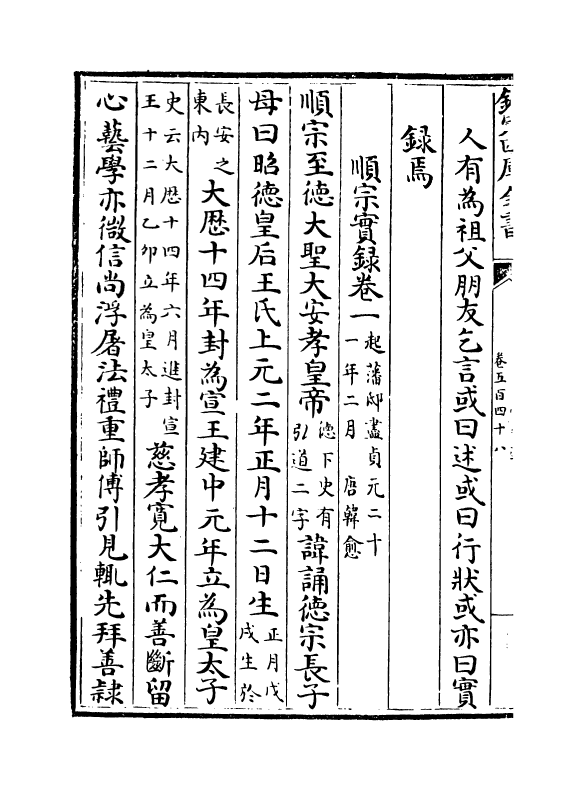 欽定四庫全書
卷五百四十八
人有為祖父朋友乞言或曰述或曰行狀或亦曰實
録焉
順宗實録卷一起藩邸盡貞元二十一年二月 唐韓愈
順宗至徳大聖大安孝皇帝徳下史有引道二字諱誦徳宗長子
母曰昭徳皇后王氏上元二年正月十二日生正月戊戌生於
長安之東内大歴十四年封為宣王建中元年立為皇太子
史云大歴十四年六月進封宣王十二月乙夘立為皇太子慈孝寛大仁而善斷留
心藝學亦微信尚浮屠法禮重師傅引見輒先拜善隷